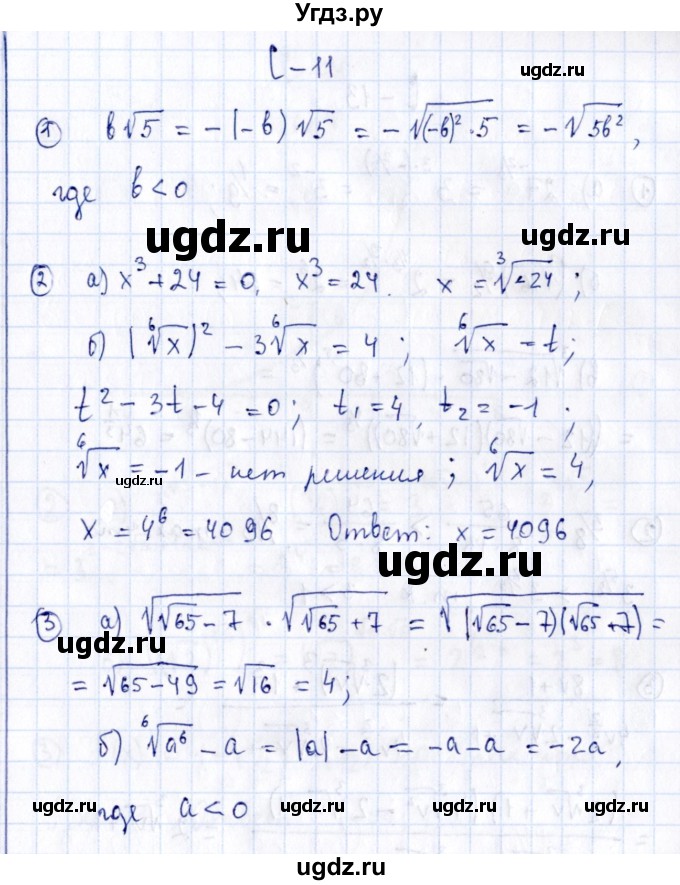 Угдз.ру
С-11
ugdz.ru
① b√5 = -(-b)√5 = -√((-b)²·5) = -√(5b²),
где b<0
ugdz.ru
② а) x³+24=0, x³=24. x = ³√(-24);
б) (⁶√x)² - 3⁶√x = 4; ⁶√x = t;
ugdz.ru
t² - 3t - 4 = 0; t₁=4, t₂=-1;
⁶√x = -1 - нет решения; ⁶√x = 4,
ugdz.ru
x = 4⁶ = 4096 Ответ: x = 4096
ugdz.ru
③ а) √(√65-7) · √(√65+7) = √((√65-7)(√65+7)) =
ugdz.ru
= √(65-49) = √16 = 4;
б) ⁶√a⁶ - a = |a| - a = -a-a = -2a,
где a<0
ugdz.ru ugdz.ru ugdz.ru
ugdz.ru